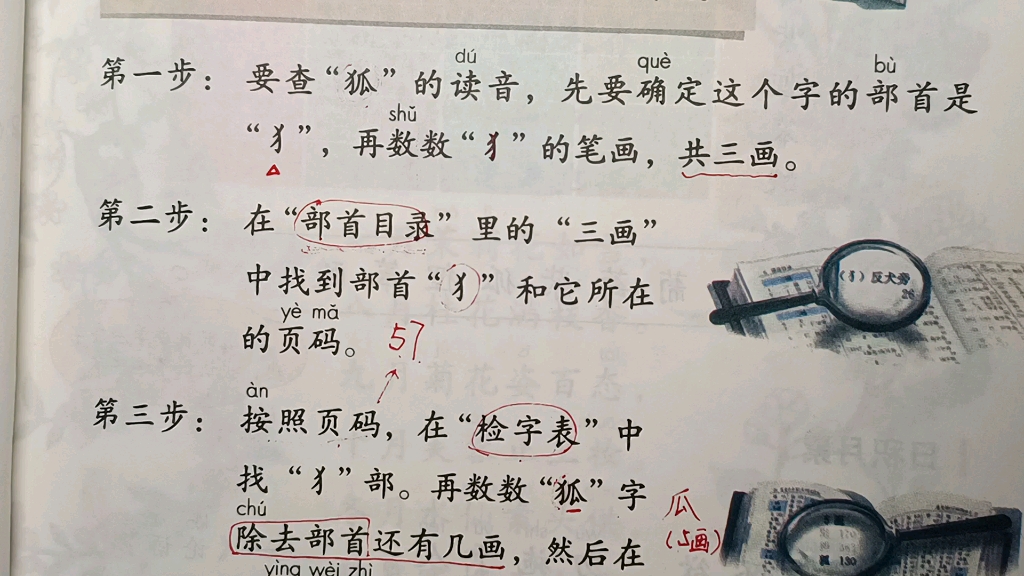 dú què bù
第一步：要查“狐”的读音，先要确定这个字的部首是
shǔ
“犭”，再数数“犭”的笔画，共三画。
第二步：在“部首目录”里的“三画”
中找到部首“犭”和它所在
yè mǎ
的页码。57
àn
第三步：按照页码，在“检字表”中
找“犭”部。再数数“狐”字
瓜
chú
除去部首还有几画，然后在
(5画)
yìng wèi zhì
(犭)反犬旁